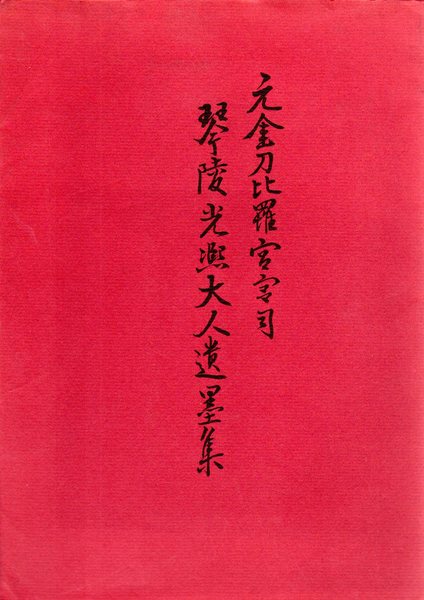 元金刀比羅宮宮司
琴陵光熈大人遺墨集